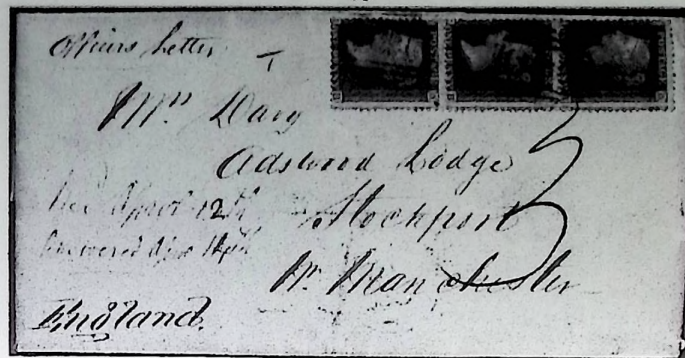 Officers Letter
Mrs Davy
Adswood Lodge
Stockport
Nr. Manchester
Rec April 12th
Answered Apr 14th
England.
3